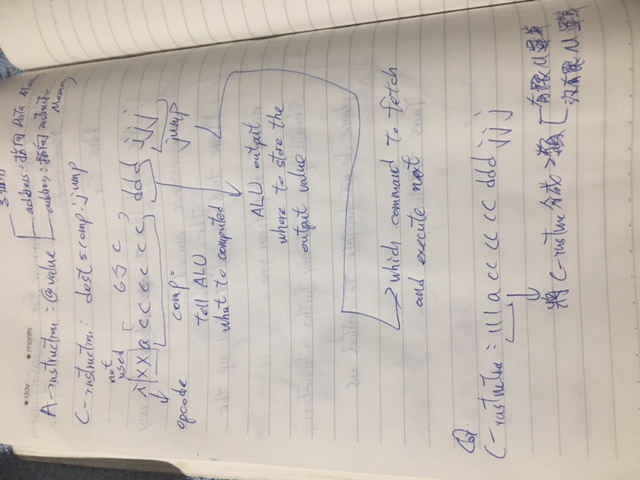 • day • month
A-instruction : @value
address : 指向 Data Memory
address : 指向 instructor Memory
C-instruction : dest = comp ; jump
not used
6 c
i x x a c c c c c c d d d j j j
opcode
comp =
tell ALU
what to computed
jump
ALU output
where to store the
output value
which command to fetch
and execute next
C-instruction = 111 a cc cc cc ddd jjj
將 C-instruc 分成 2 類
有跟 M 運算
沒有跟 M 運算